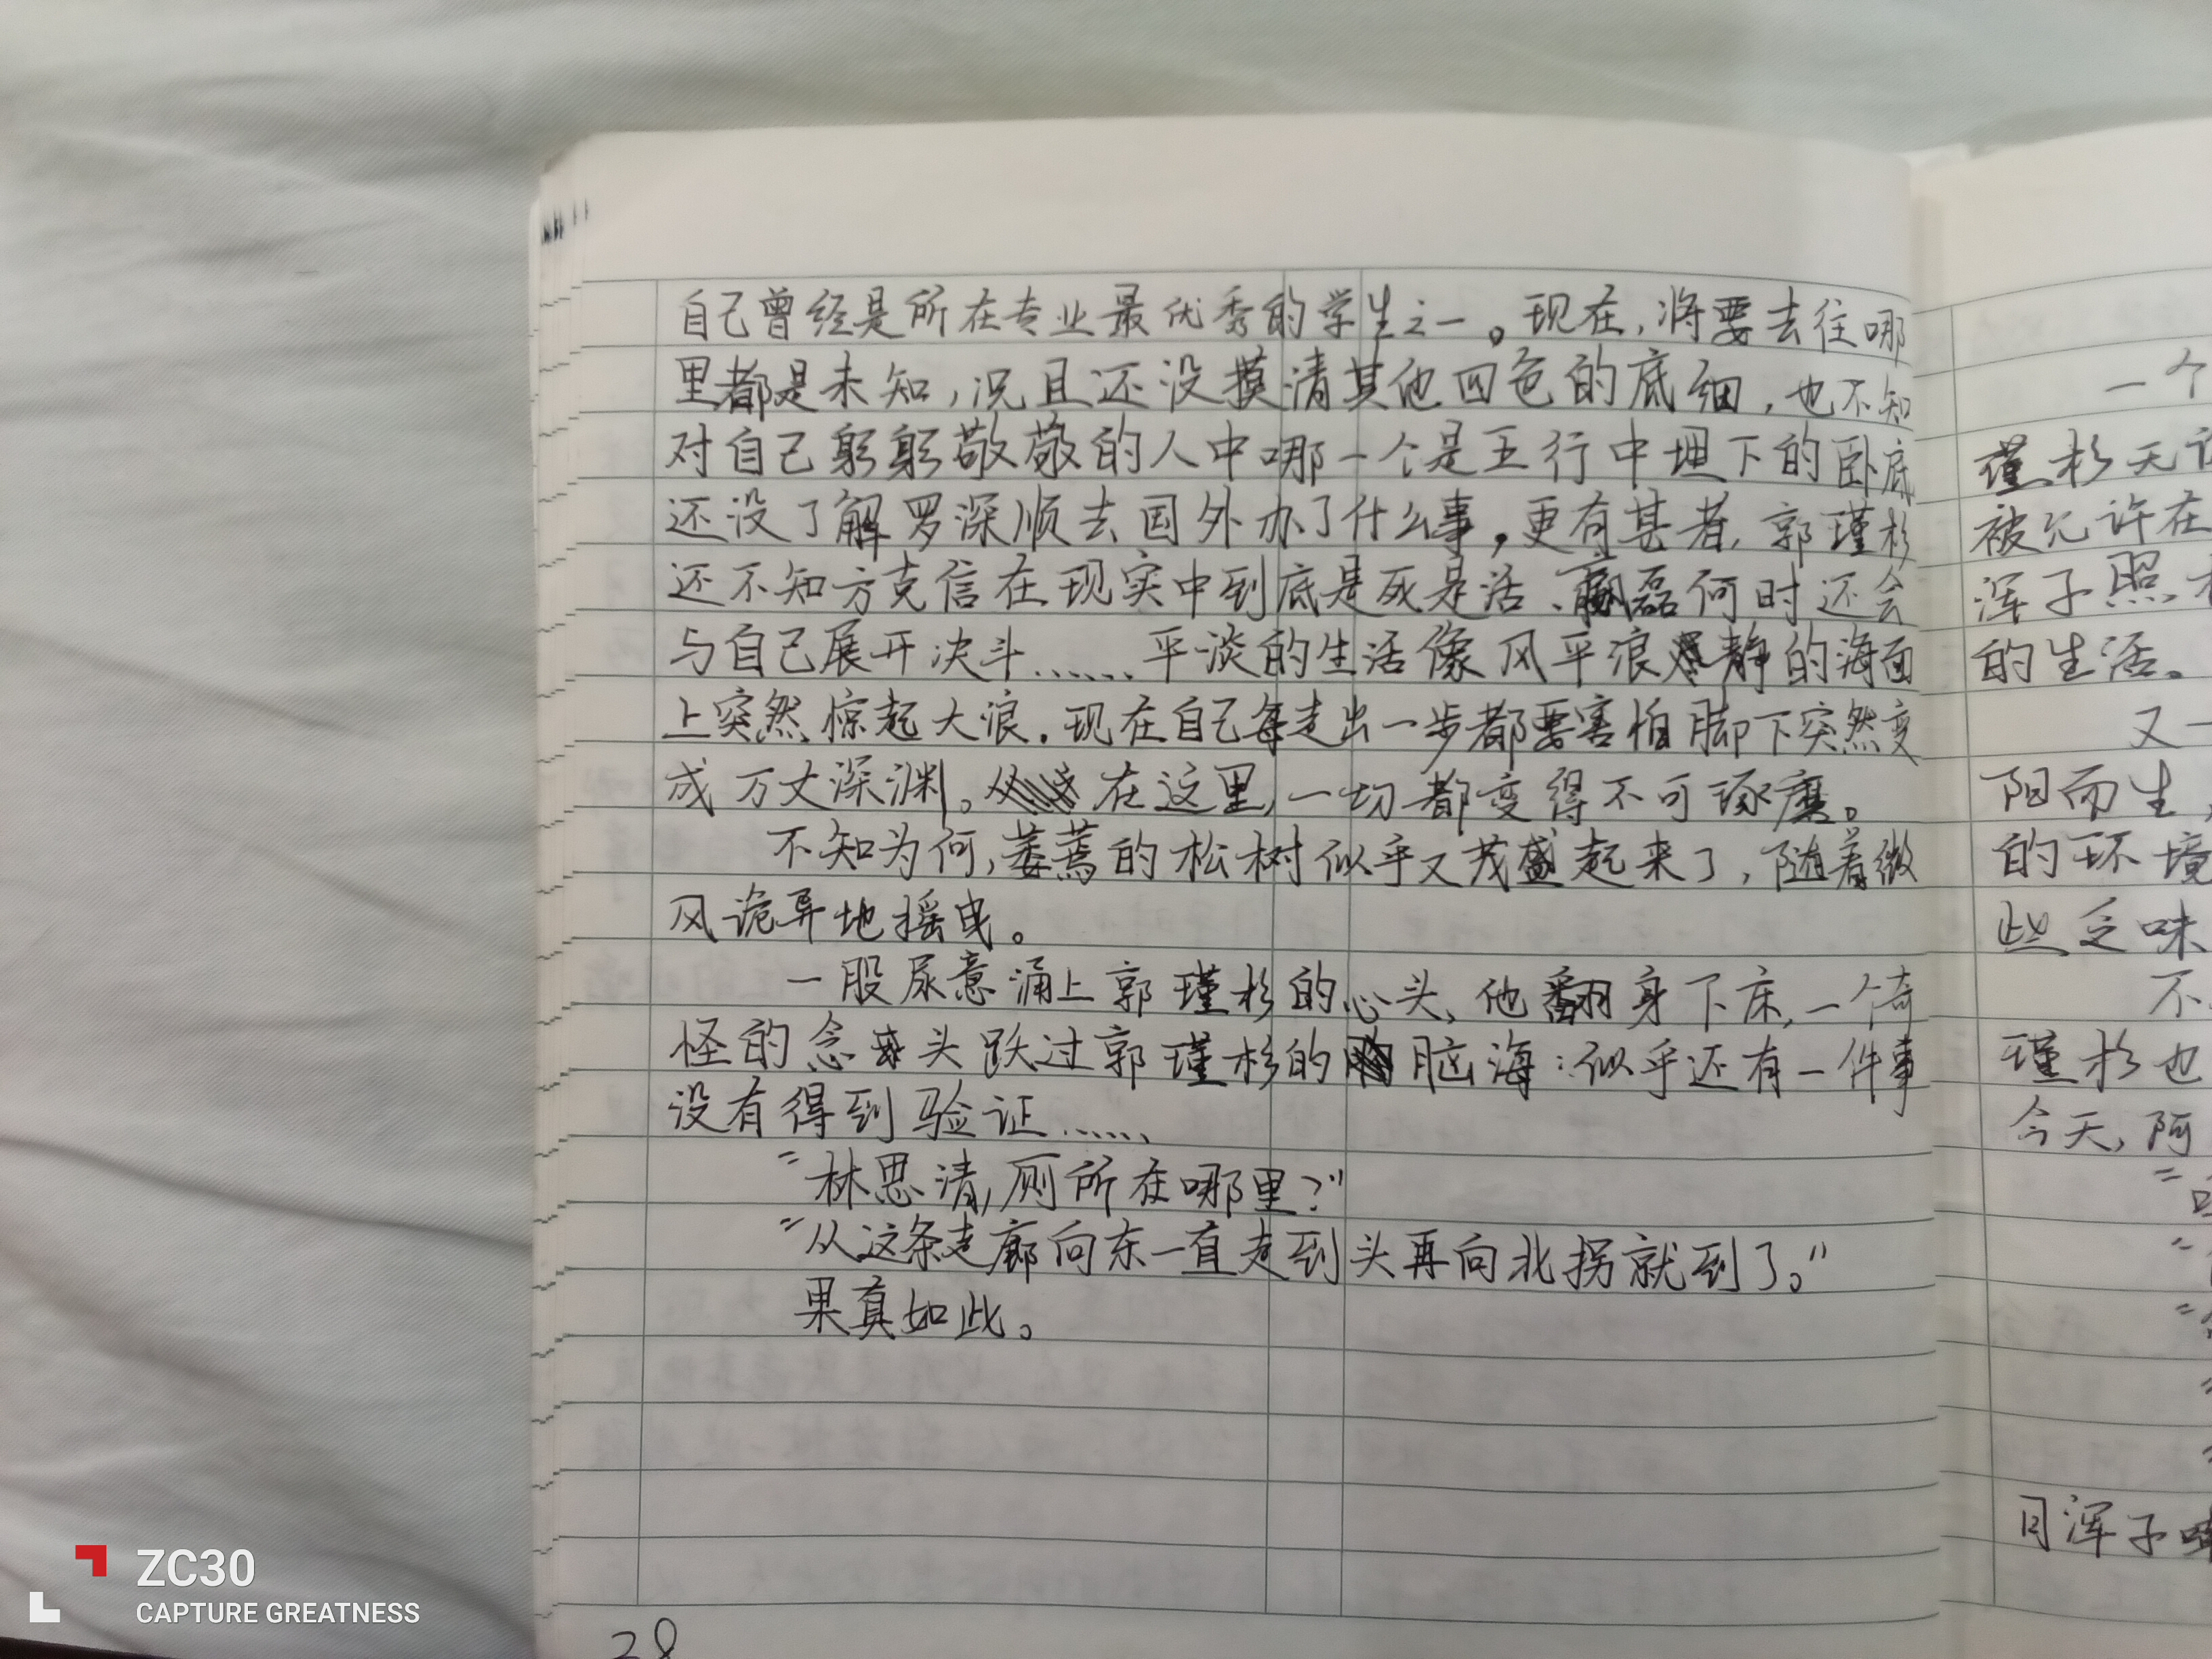 自己曾经是所在专业最优秀的学生之一。现在,将要去往哪
里都是未知,况且还没摸清其他四色的底细,也不知
对自己躬躬敬敬的人中哪一个是五行中埋下的卧底
还没了解罗深顺去国外办了什么事,更有甚者,郭瑾杉
还不知方克信在现实中到底是死是活、磊何时还会
与自己展开决斗……平淡的生活像风平浪静的海面
上突然惊起大浪.现在自己每走出一步都要害怕脚下突然变
成万丈深渊。在这里,一切都变得不可琢磨。
不知为何,萎蔫的松树似乎又茂盛起来了,随着微
风诡异地摇曳。
一股尿意涌上郭瑾杉的心头,他翻身下床,一个奇
怪的念头跃过郭瑾杉的脑海:似乎还有一件事
没有得到验证……
"林思清,厕所在哪里?"
"从这条走廊向东一直走到头再向北拐就到了。"
果真如此。
28
一个
瑾杉无
被允许在
浑子照
的生活。
又一
阳而生,
的环境
些乏味
不
瑾杉也
今天,阿
月浑子
ZC30
CAPTURE GREATNESS